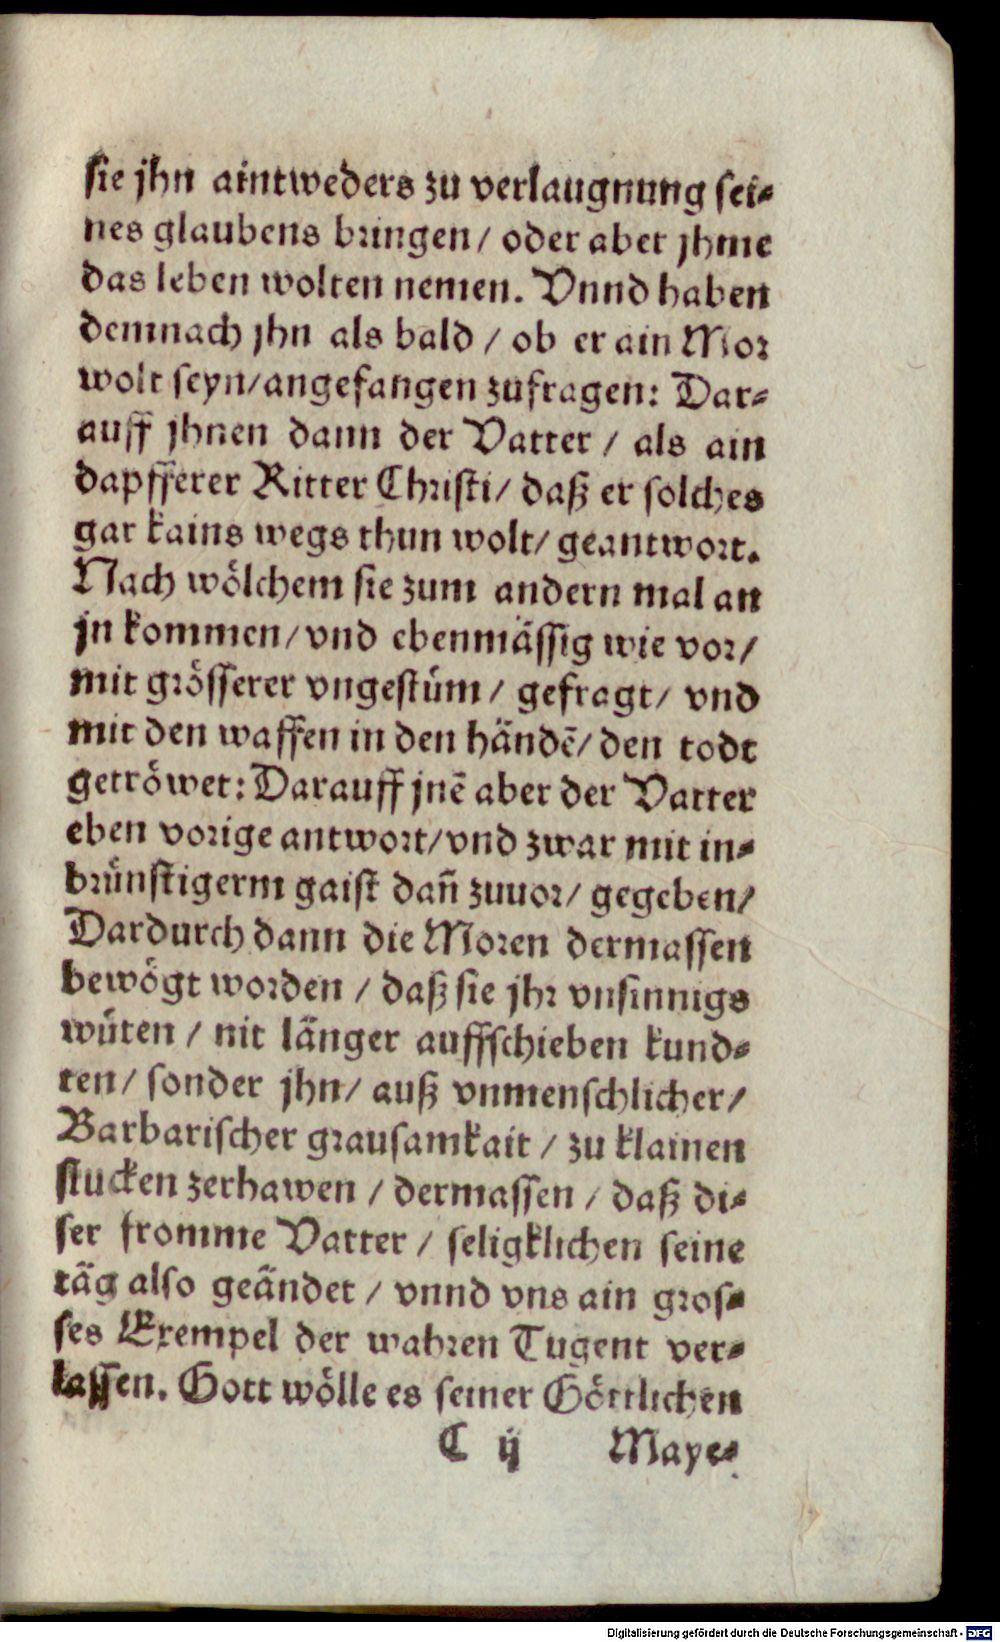 sie jhn aintweders zu verlaugnung sei⸗
nes glaubens bringen/ oder aber jhme
das leben wolten nemen. Vnnd haben
demnach jhn als bald / ob er ain Mor
wolt seyn/angefangen zufragen: Dar⸗
auff jhnen dann der Vatter / als ain
dapfferer Ritter Christi/ daß er solches
gar kains wegs thun wolt/ geantwort.
Nach wölchem sie zum andern mal an
jn kommen/vnd ebenmässig wie vor/
mit grösserer vngestüm/ gefragt/ vnd
mit den waffen in den händẽ/ den todt
getröwet: Darauff jnẽ aber der Vatter
eben vorige antwort/vnd zwar mit in⸗
brünstigerm gaist dañ zuuor/ gegeben/
Dardurch dann die Moren dermassen
bewögt worden / daß sie jhr vnsinnigs
wüten / nit länger auffschieben kund⸗
ten/ sonder jhn/ auß vnmenschlicher/
Barbarischer grausamkait / zu klainen
stucken zerhawen / dermassen / daß di⸗
ser fromme Vatter / seligklichen seine
täg also geändet / vnnd vns ain gros⸗
ses Exempel der wahren Tugent ver⸗
lassen. Gott wölle es seiner Göttlichen
C ij Maye⸗
Digitalisierung gefördert durch die Deutsche Forschungsgemeinschaft - DFG